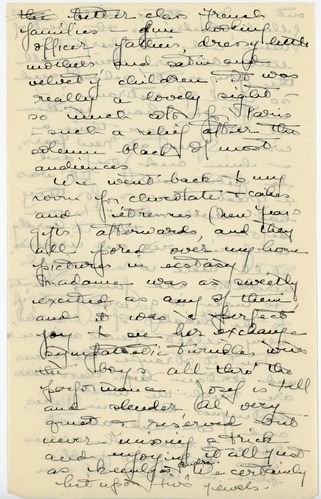 the better class French
families - fine looking
officer fathers, dressy little
mothers and satin and
velvety children. It was
really a lovely sight -
so much color for Paris
- such a relief after the
solemn black of most
audiences.
We went back to my
room for chocolate & cakes
and étrennes (New Years
gifts) afterwards, and they
all pored over my home
pictures in ecstasy.
Madame was as sweetly
excited as any of them
and it was a perfect
joy to see her exchange
sympathetic twinkles with
the boys all thro' the
performance. Josef is tall
and slender and very
quiet & reserved but
never missing a trick
and enjoying it all just
as keenly as
certainly
jewels